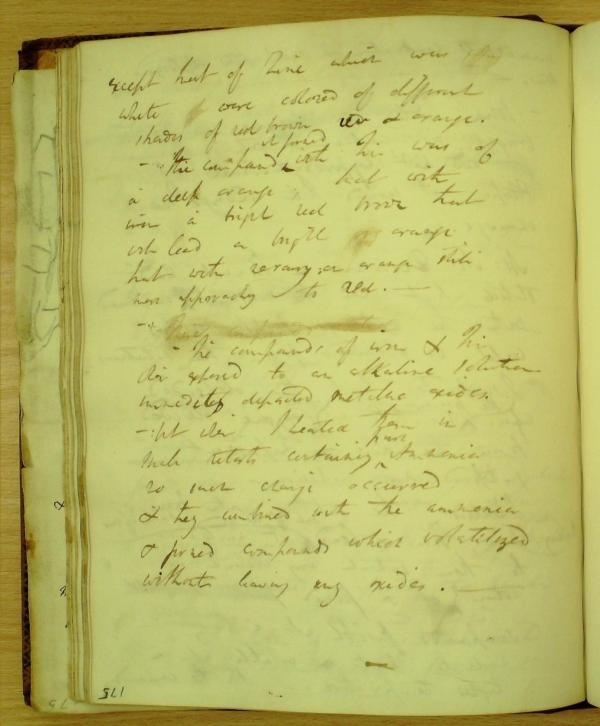 except that of Zinc which was
white were colored of different
shades of red brown red & orange.
it formed
- The compound with Tin was of
a deep orange that with
iron a bright red brown that
with lead a bright orange
that with mercury an orange still
more approaching to red. —
- The compounds of iron & Tin
when exposed to an alkaline solution
immediately deposited metallic oxides
- but when I heated them in
pure
small retorts containing Ammonia
no such change occurred
& they combined with the ammonia
& formed compounds which volatilized
without leaving any oxides. —
175